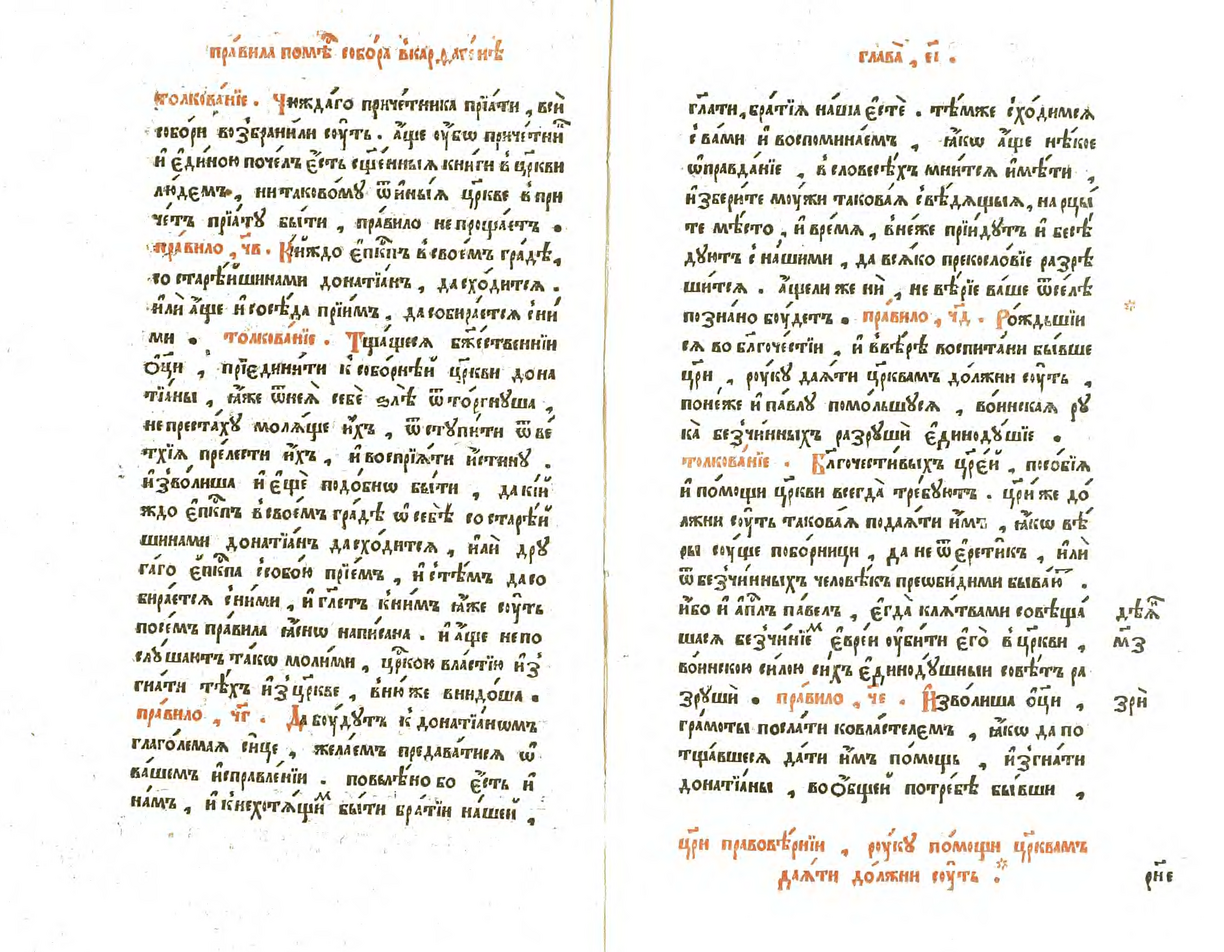 пра́вила помѣ́ⷭ҇ собо́ра в̾карѳаге́нѣ
толкова́нїе . Чи́ждаго приче́тника прїѧ́ти , всѝ
собо́ри возбрани́ли сꙋ́ть . а҆́ще ᲂу҆́бѡ приче́тни
и҆ є҆ди́ною поче́лъ є҆́сть сщ҃е́нныѧ кни́ги в̾ цр҃кви
лю́демъ , ни тако́вомꙋ ѿ и҆ны́ѧ цр҃кве в̾ при
че́тъ прїѧ́тꙋ бы́ти , пра́вило не проща́етъ .
пра́вило , ч҃в . Кі́йждо є҆пⷭ҇кпъ в̾ свое́мъ гра́дѣ ,
со старѣ́йшинами донатїа́нъ , да схо́дитсѧ .
и҆лѝ а҆́ще и҆ сосѣ́да прїи́мъ , да собира́етсѧ с ни́
ми . толкова́нїе . Тща́щесѧ бж҃е́ственнїи
ѻ҆ц҃ы̀ , прїєдини́ти к собо́рнѣй цр҃кви дона
тїа́ны , ꙗ҆́же ѿ неѧ̀ себѐ ѕлѣ̀ ѿто́ргнꙋша ,
не преста́хꙋ молѧ́ще и҆́хъ , ѿстꙋпи́ти ѿ ве́
тхїѧ пре́лести и҆́хъ , и҆ воспрїѧ́ти и҆́стинꙋ .
и҆зво́лиша и҆ є҆щѐ подо́бнѡ бы́ти , да кі́й
ждо є҆пⷭ҇кпъ в̾ свое́мъ гра́дѣ ѡ҆ себѣ̀ со старѣ́й
шинами донатїа́нъ да схо́дитсѧ , и҆лѝ дрꙋ
га́го є҆пⷭ҇кпа с̾ собо́ю прїе́мъ , и҆ с тѣ́мъ да со
бира́етсѧ с ни́ми , и҆ гл҃етъ к ни́мъ ꙗ҆́же сꙋ́ть
по се́мъ пра́вила ꙗ҆́снѡ напи́сана . и҆ а҆́ще не по
слꙋ́шаютъ та́кѡ моли́ми , цр҃кою вла́стїю и҆з̾
гна́ти тѣ́хъ и҆з̾ цр҃кве , в ню́же внидо́ша .
пра́вило , ч҃г . Да бꙋ́дꙋтъ к̾ донатїа́нѡмъ
глаго́лемаѧ си́це , жела́емъ предава́тисѧ ѡ҆
ва́шемъ и҆справле́нїи . повелѣ́но бо є҆́сть и҆
на́мъ , и҆ к̾ нехотѧ́щиⷨ бы́ти бра́тїи на́шей ,
глава̀ , є҃і .
гл҃ати , бра́тїѧ на́ша є҆стѐ . тѣ́мже сходи́месѧ
с ва́ми и҆ воспомина́емъ , ꙗ҆́кѡ а҆́ще нѣ́кое
ѡ҆правда́нїе , в̾ словесѣ́хъ мни́тсѧ и҆мѣ́ти ,
и҆збери́те мꙋ́жи такова́ѧ свѣ́дѧщыѧ , нарцы́
те мѣ́сто , и҆ вре́мѧ , в не́же прїи́дꙋтъ и҆ бесѣ́
дꙋютъ с на́шими , да всѧ́ко прекосло́вїе разрѣ
ши́тсѧ . а҆́щели же нѝ , невѣ́рїе ва́ше ѿсе́лѣ
позна́но бꙋ́детъ . пра́вило , ч҃д . Ро́ждьшїи
сѧ во бл҃гоче́стїи , и҆ в̾ вѣ́рѣ воспита́ни бы́вше
цр҃и , рꙋ́кꙋ даѧ́ти цр҃квамъ до́лжни сꙋ́ть ,
поне́же и҆ па́влꙋ помо́льшꙋсѧ , во́инскаѧ рꙋ
ка̀ безчи́нныхъ разрꙋшѝ є҆динодꙋ́шїе .
толкова́нїе . Бл҃гочести́выхъ цр҃е́й , посо́бїѧ
и҆ по́мощи цр҃кви всегда̀ тре́бꙋютъ . цр҃и же до́
лжни сꙋ́ть такова́ѧ подаѧ́ти и҆̀мъ , ꙗ҆́кѡ вѣ́
ры сꙋ́ще побо́рницы , да не ѿ є҆рети́къ , и҆лѝ
ѿ безчи́нныхъ человѣ́къ преѡби́дими быва́ю .
и҆́бо и҆ а҆пⷭ҇лъ па́велъ , є҆гда̀ клѧ́твами совѣща́
шасѧ безчи́нїеⷨ є҆вре́и ᲂу҆би́ти є҆го̀ в̾ цр҃кви ,
во́инскою си́лою си́хъ є҆динодꙋ́шныи совѣ́тъ ра
зрꙋшѝ . пра́вило , ч҃е . И҆зво́лиша ѻ҆ц҃ы̀ ,
гра́моты посла́ти ко власте́лемъ , ꙗ҆́кѡ да по
тща́вшесѧ да́ти и҆̀мъ по́мощь , и҆згна́ти
донатїа́ны , во ѻ҆́бщей потре́бѣ бы́вши ,
дѣѧ҇
м҃з
зрѝ
цр҃и правовѣ́рнїи , рꙋ́кꙋ по́мощи цр҃квамъ
даѧ́ти до́лжни сꙋ́ть .
рн҃е